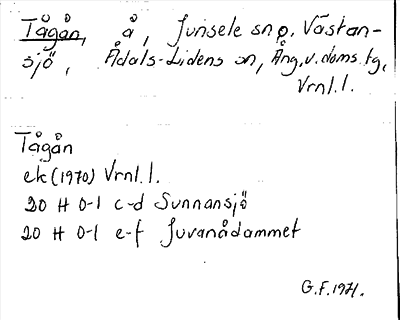 Tågån, å, Junsele sn o. Västan-
sjö, Ådals-Lidens sn, Ång.v.doms.tg,
Vrnl.l.
Tågån
ek (1970) Vrnl.l.
20 H 0-1 c-d Sunnansjö
20 H 0-1 e-f Juvanådammet
G.F.1971.